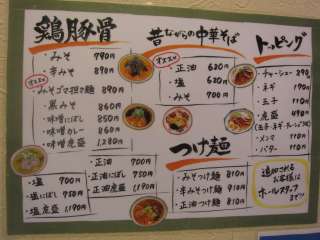 鶏豚骨
・みそ 790円
・辛みそ 890円
オススメ
・みそゴマ担々麺 890円
・黒みそ 860円
・味噌にぼし 850円
・味噌カレー 860円
・味噌虎盛 1,280円
・塩 700円
・塩にぼし 750円
・塩虎盛 1,190円
・正油 700円
・正油にぼし 750円
・正油虎盛 1,190円
昔ながらの中華そば
オススメ
・正油 620円
・塩 630円
・みそ 700円
つけ麺
・みそつけ麺 810円
・辛みそつけ麺 910円
・正油つけ麺 810円
トッピング
・チャーシュー 290円
・ネギ 190円
・玉子 110円
・虎盛 490円
・メンマ 110円
・バター 110円
追加される
お客様は
ホールスタッフ
まで